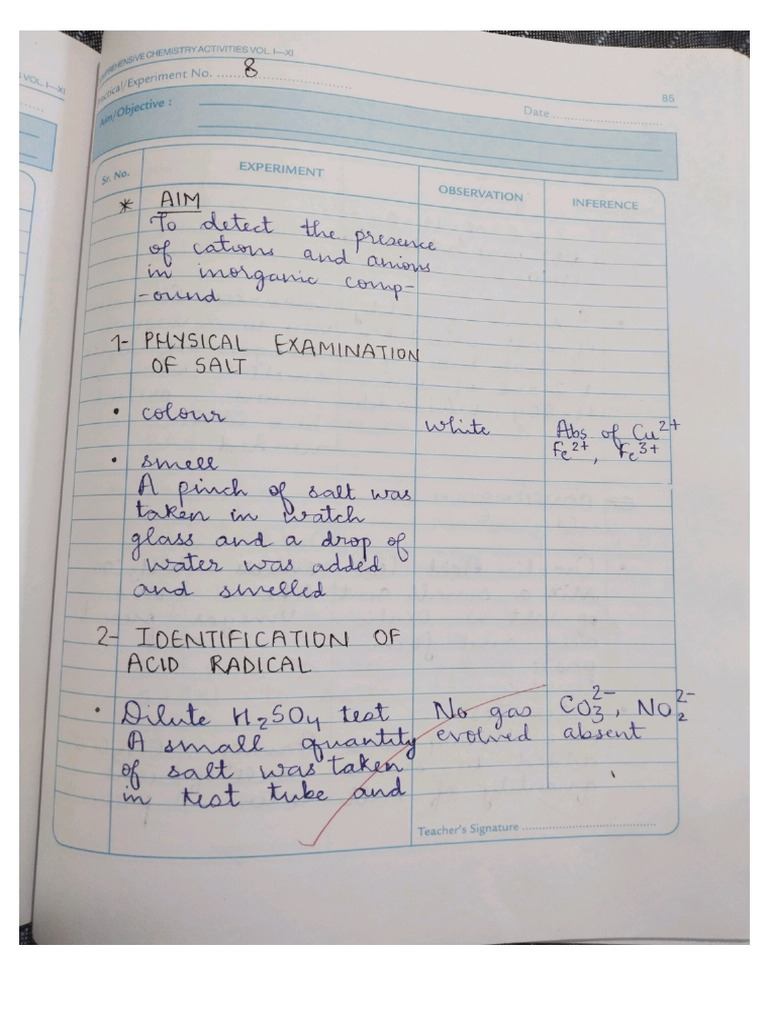 COMPREHENSIVE CHEMISTRY ACTIVITIES VOL. I—XI
VOL. I—XI
Practical/Experiment No. 8
85
Date
Aim/Objective :
Sr. No.
EXPERIMENT
OBSERVATION
INFERENCE
* AIM
To detect the presence
of cations and anions
in inorganic comp-
-ound
1- PHYSICAL EXAMINATION
OF SALT
• colour white Abs of Cu²⁺
Fe²⁺, Fe³⁺
• smell
A pinch of salt was
taken in watch
glass and a drop of
water was added
and smelled
2- IDENTIFICATION OF
ACID RADICAL
• Dilute H₂SO₄ test No gas CO₃²⁻, NO₂²⁻
A small quantity evolved absent
of salt was taken
in test tube and
Teacher's Signature